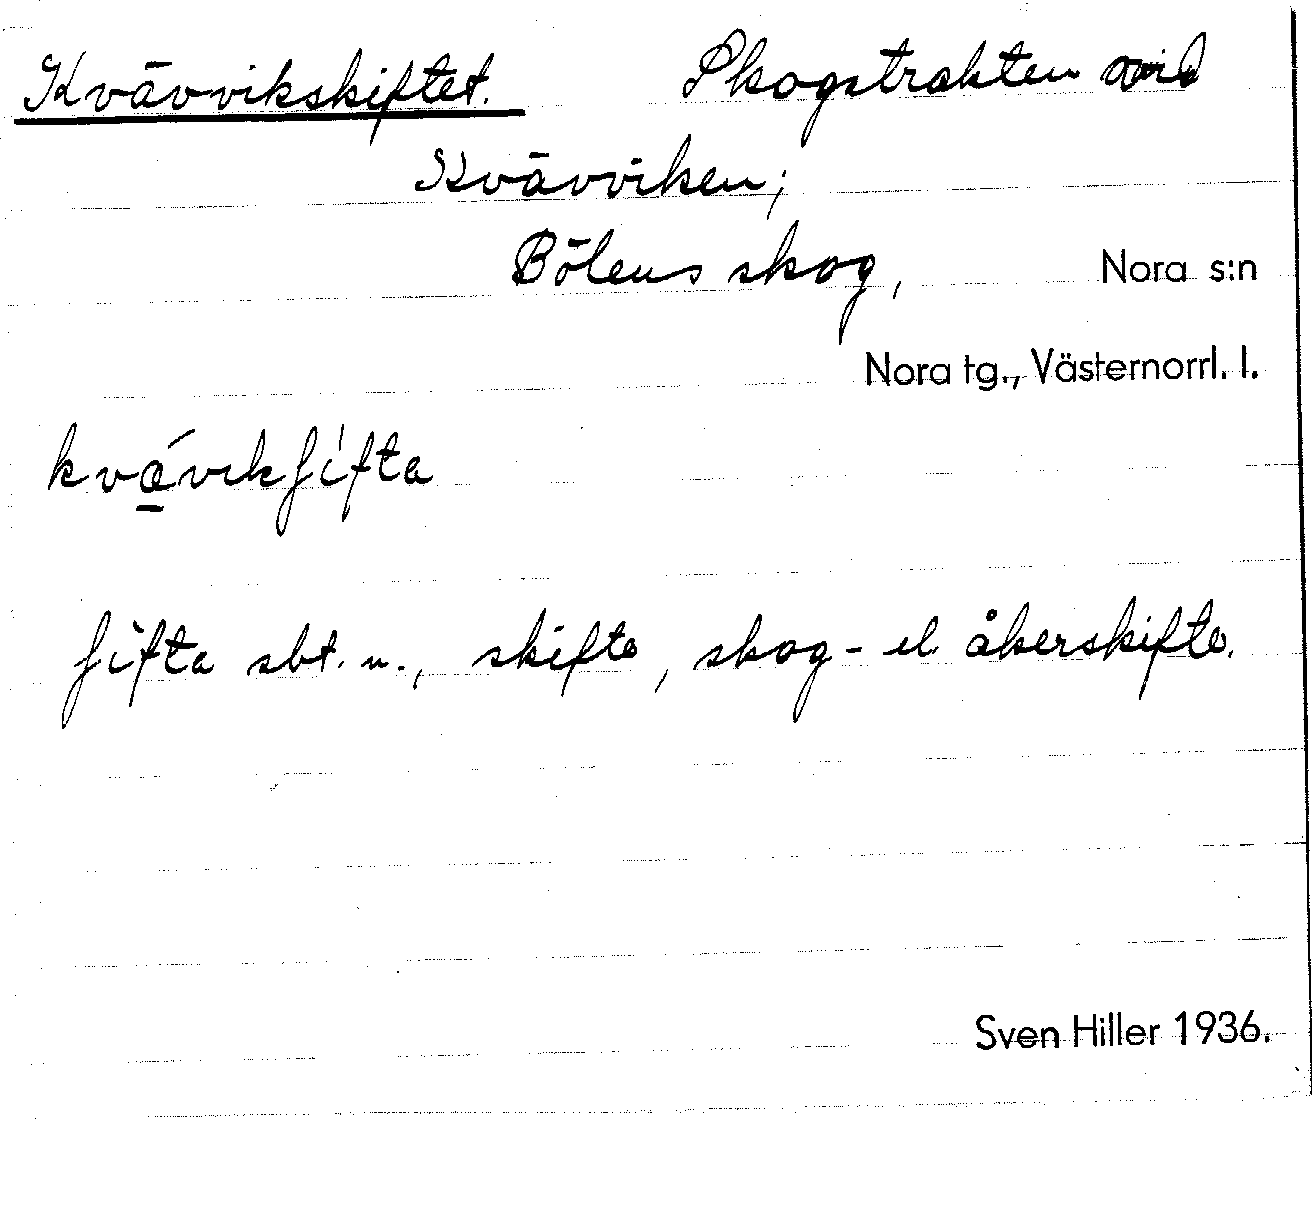 Kvävvikskiftet. Skogstrakten vid
Kvävviken;
Bölens skog, Nora s:n
Nora tg., Västernorrl. l.
kvǽvıkʃifta
ʃifta sbt. n., skifte, skog- el. åkerskifte.
Sven Hiller 1936.